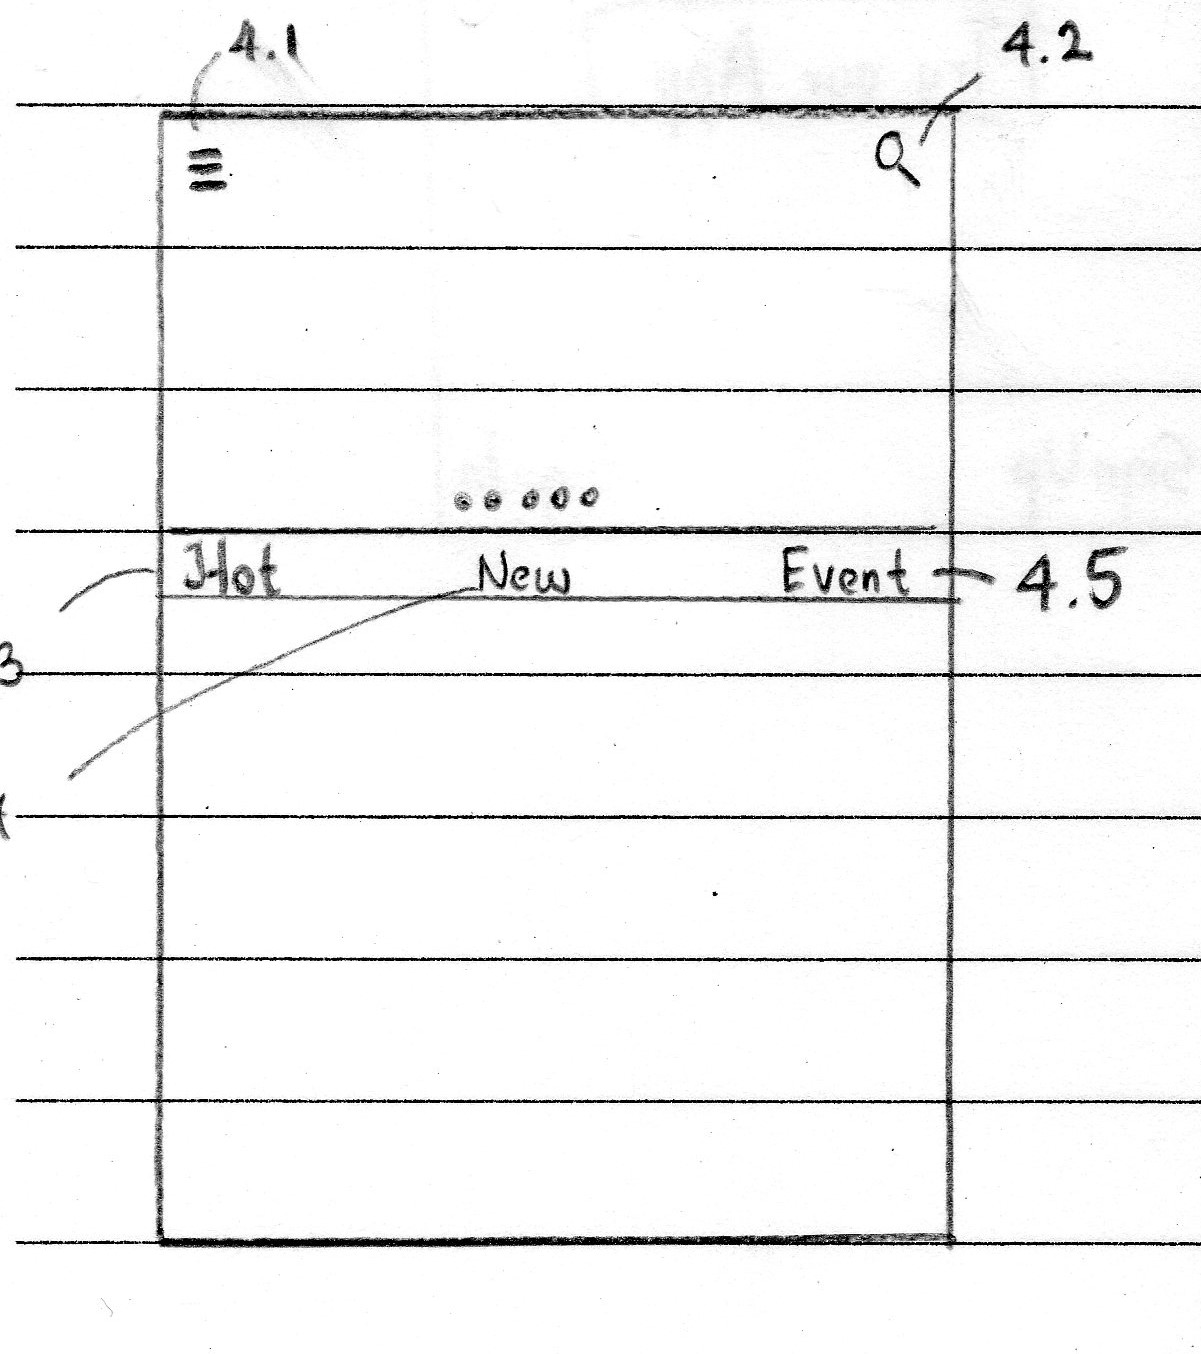 4.1 4.2
Hot New Event 4.5
3